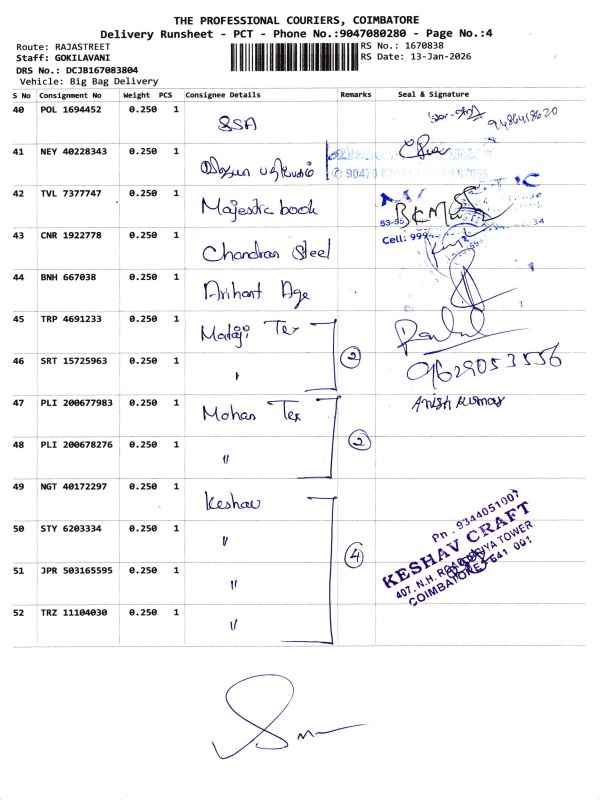 THE PROFESSIONAL COURIERS, COIMBATORE
Delivery Runsheet - PCT - Phone No.:9047080280 - Page No.:4
Route: RAJASTREET
RS No.: 1670838
Staff: GOKILAVANI
RS Date: 13-Jan-2026
DRS No.: DCJB167083804
Vehicle: Big Bag Delivery
S No Consignment No Weight PCS Consignee Details Remarks Seal & Signature
40 POL 1694452 0.250 1 SSA 9486418620
41 NEY 40228343 0.250 1
42 TVL 7377747 0.250 1 Majestic book
Cell: 999
43 CNR 1922778 0.250 1 Chandran Steel
44 BNH 667038 0.250 1 Arihant Age
45 TRP 4691233 0.250 1 Mataji Tex
46 SRT 15725963 0.250 1 " 2 9629053556
47 PLI 200677983 0.250 1 Mohan Tex Anish Kumar
48 PLI 200678276 0.250 1 " 2
49 NGT 40172297 0.250 1 Keshav
50 STY 6203334 0.250 1 " 4
51 JPR 503165595 0.250 1 "
52 TRZ 11104030 0.250 1 "
Pn. 9344051007
KESHAV CRAFT
407, N.H. ROAD, TOWER
COIMBATORE-641 001